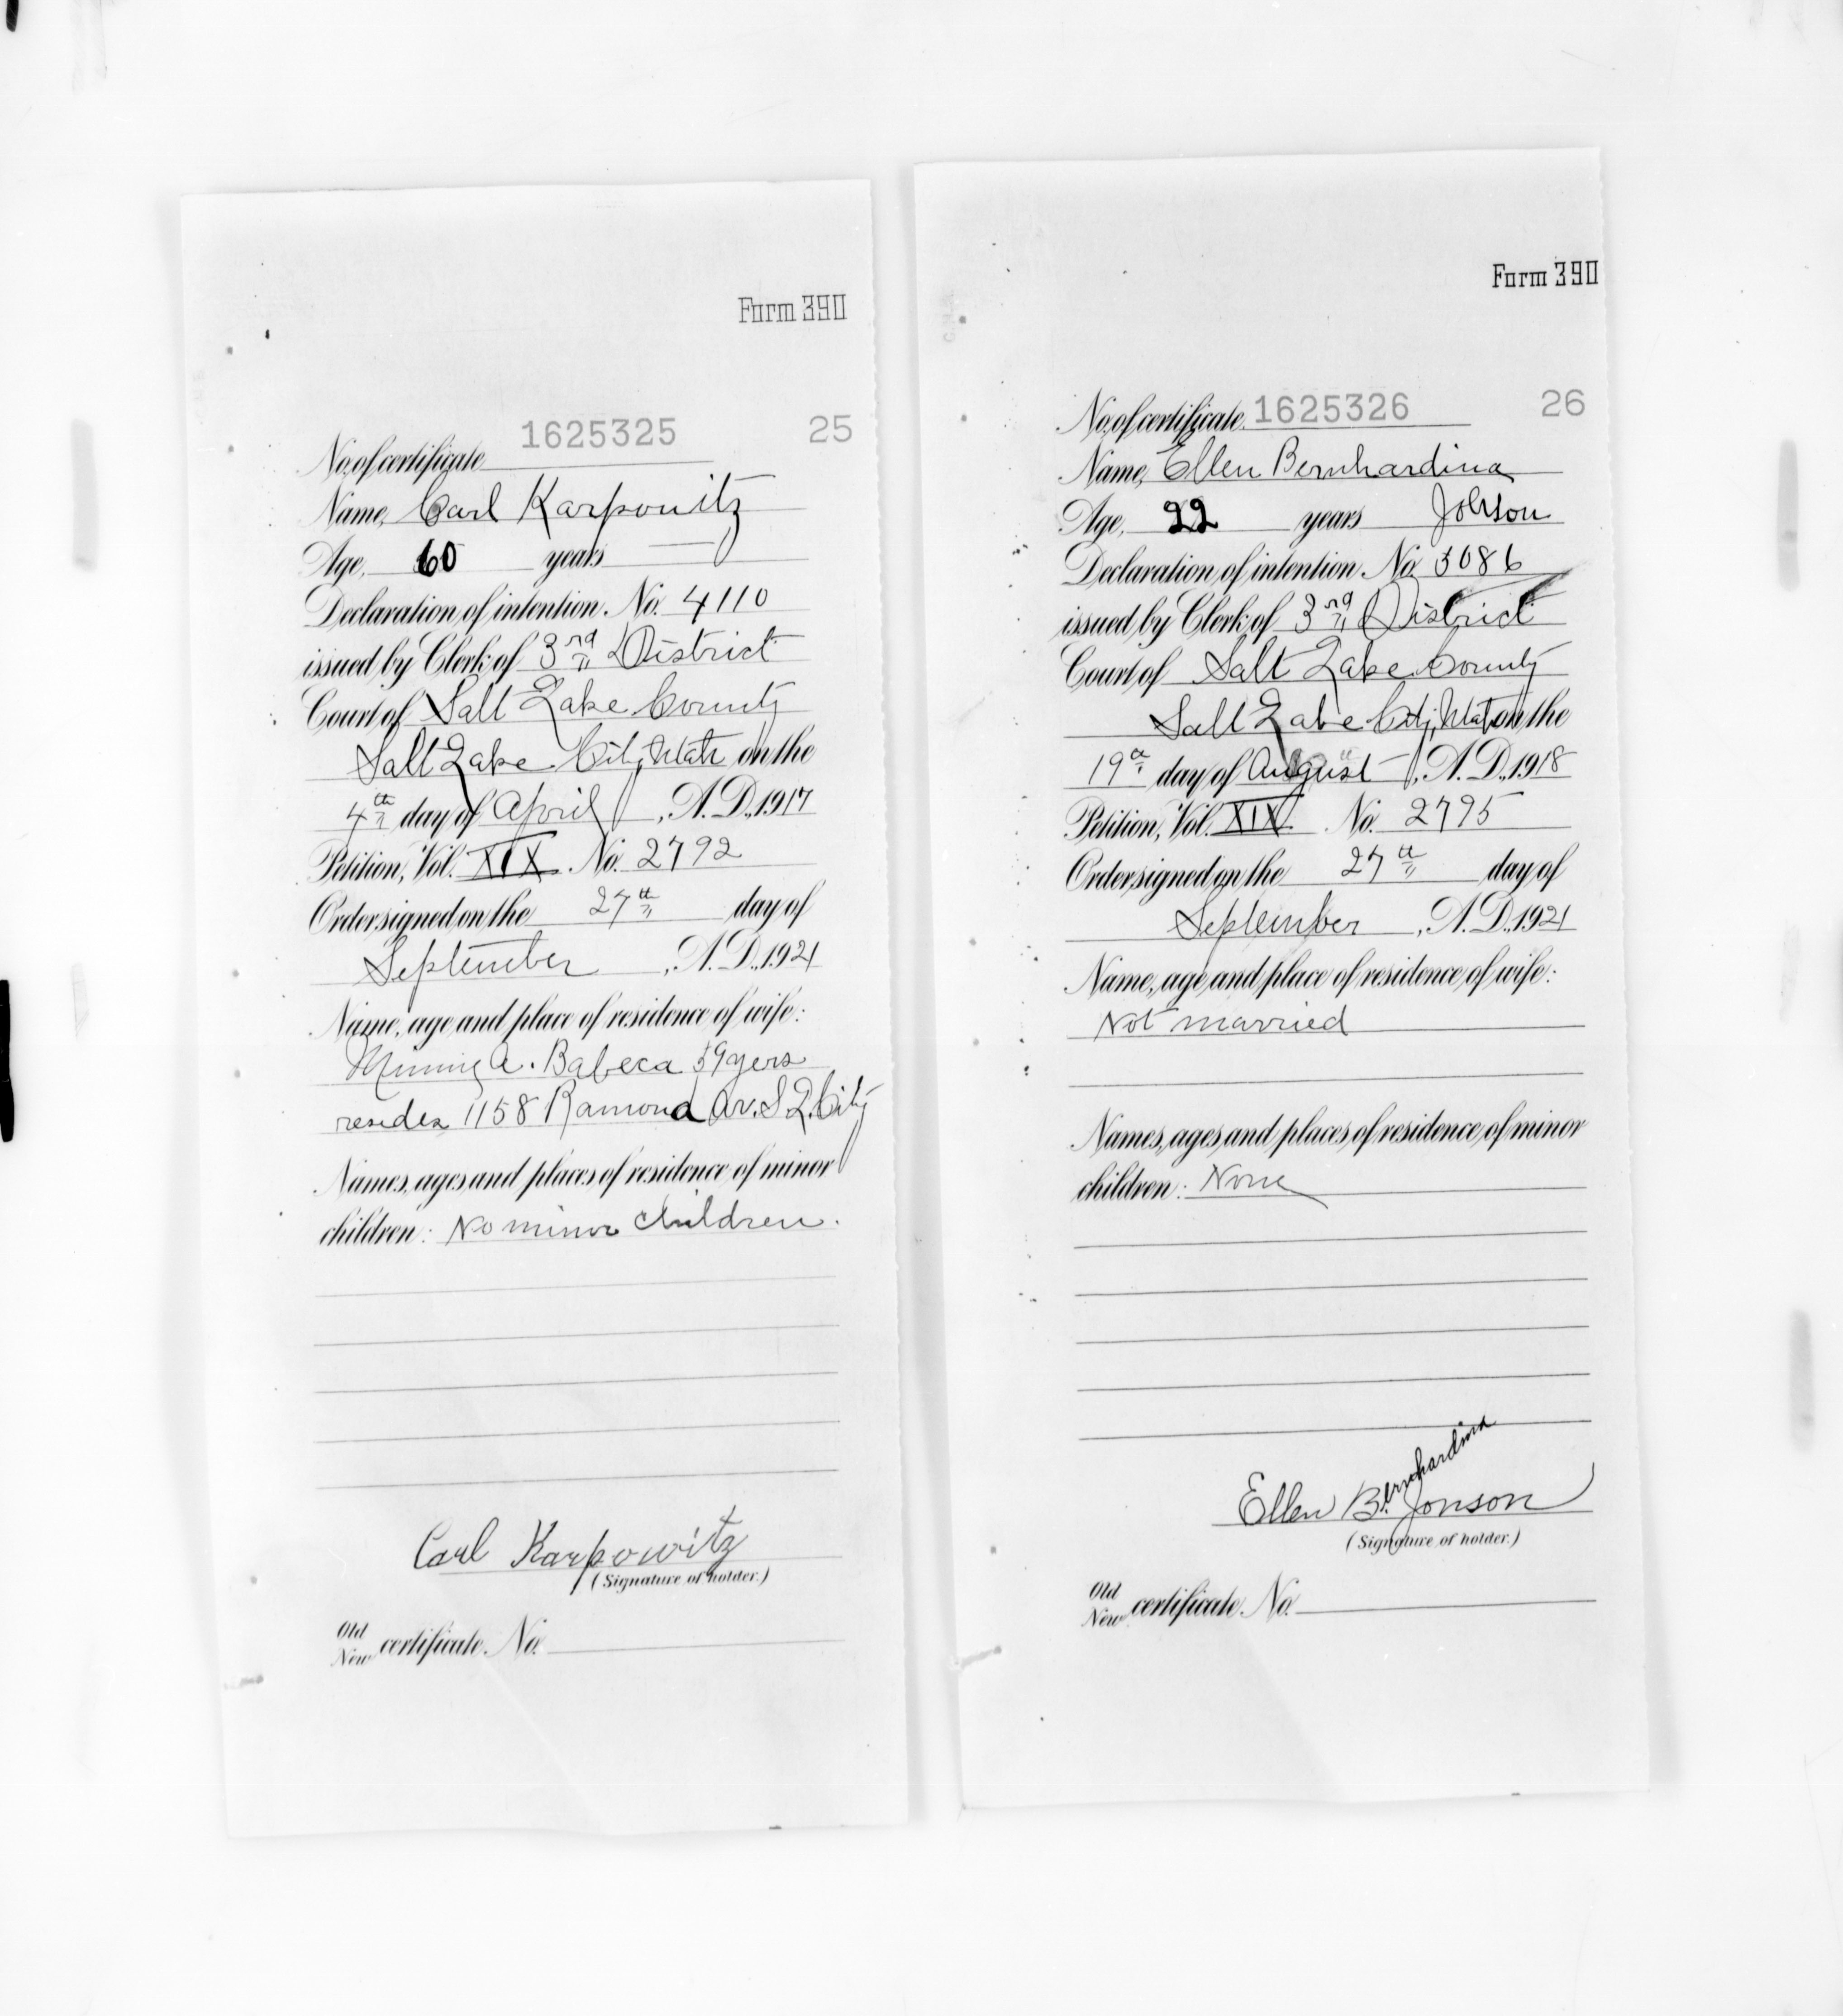 Form 390
1625325 25
No. of certificate
Name, Carl Karpowitz
Age, 60 years
Declaration of intention No. 4110
issued by Clerk of 3rd District
Court of Salt Lake County
Salt Lake City, Utah on the
4th day of April, A.D. 1917
Petition, Vol. XIX No. 2792
Order signed on the 27th day of
September, A.D. 1921
Name, age and place of residence of wife:
A. Babeca 59 yers
resides 1158 Ramona Av. S L. City
Names, ages and places of residence of minor
children: No minor children.
Carl Karpowitz
(Signature of holder.)
Old
New certificate No.
Form 390
No. of certificate 1625326 26
Name, Ellen Bernhardina
Age, 22 years Jonson
Declaration of intention No. 5086
issued by Clerk of 3rd District
Court of Salt Lake County
Salt Lake City, Utah on the
19th day of August, A.D. 1918
Petition, Vol. XIX No. 2795
Order signed on the 27th day of
September, A.D. 1921
Name, age and place of residence of wife:
Not married
Names, ages and places of residence of minor
children: None
Ellen Bernhardina Jonson
(Signature of holder.)
Old
New certificate No.